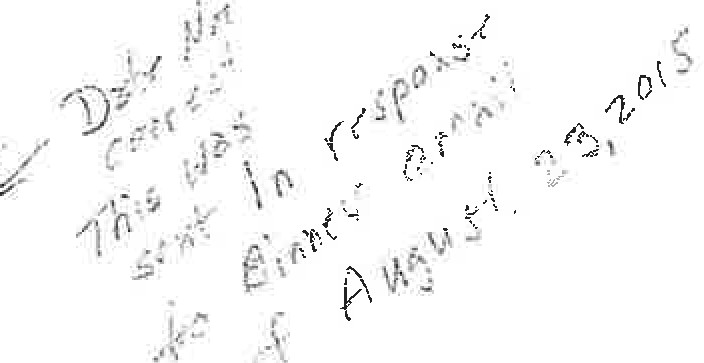 Date Not
correct
This was
sent in response
to Binney email
of August 23, 2015